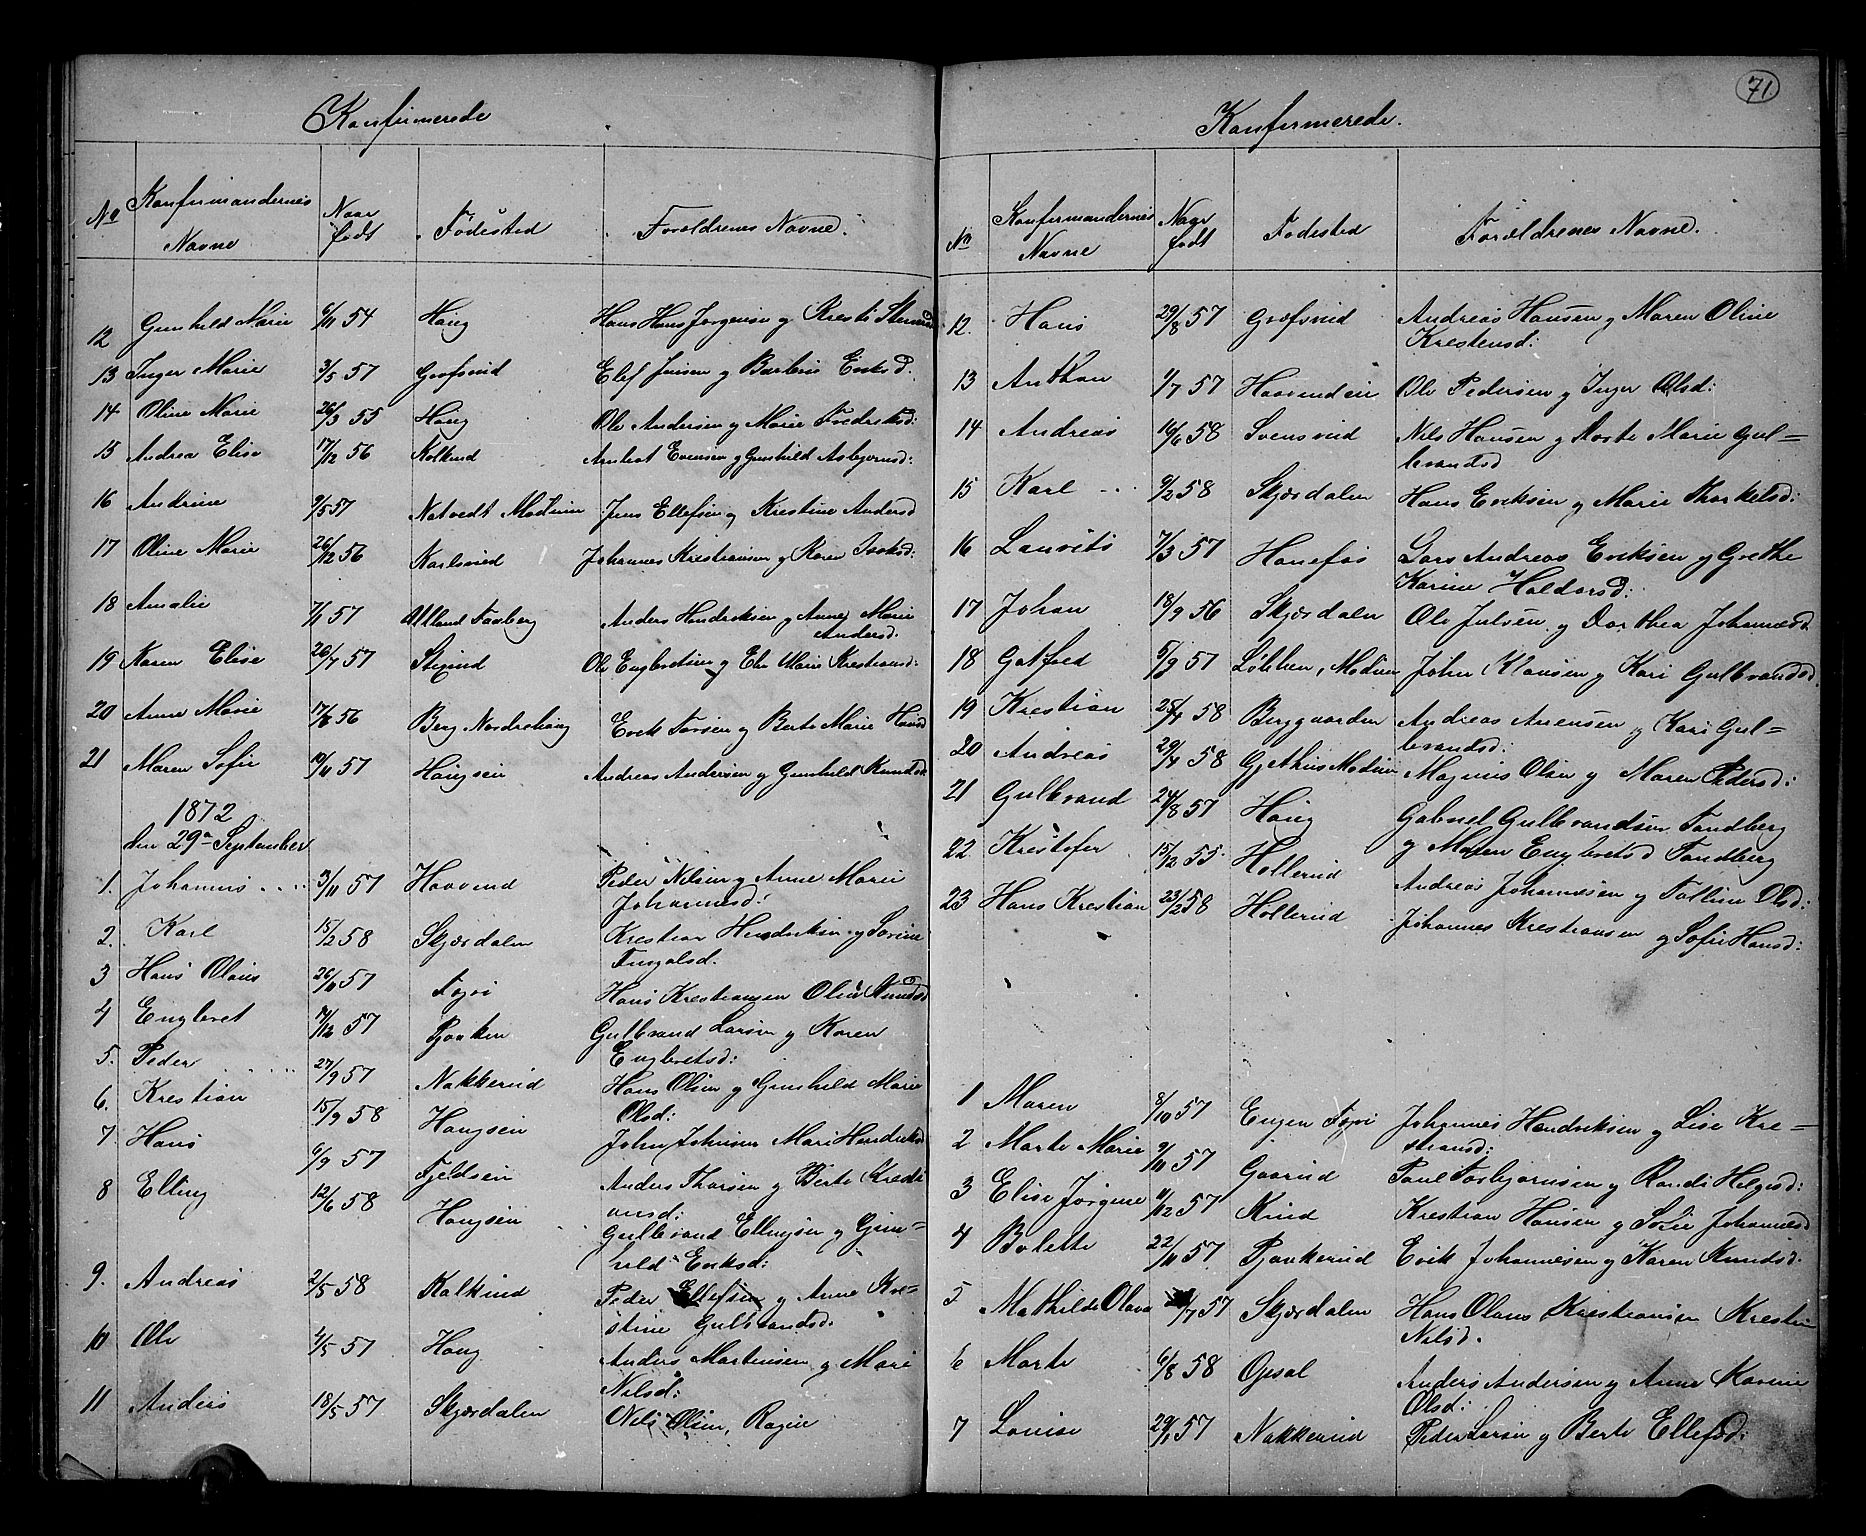 Konfirmerede
No Konfirmandernes Navne Naar født Fødested Forældrenes Navne.
12 Gunhild Marie 6/11 54 Haug Hans Hans Jørgensen og Kresti
13 Inger Marie 3/5 57 Grøfsrud Elef Jensen og Barbro Eriksd.
14 Oline Marie 26/3 55 Haug Ole Andersen og Marie Fredriksd:
15 Andrea Elise 17/12 56 Kolkind Arnbot Evensen og Gunhild Asbjørnsd:
16 Andrine 9/5 57 Natvedt Modum Jens Ellefsen og Krestine Andersd
17 Oline Marie 26/12 56 Karlsrud Johannes Krestiansen og Karen Isaksd:
18 Amalie 7/1 57 Ulland Faaberg Anders Hendriksen og Anne Marie
Andersd.
19 Karen Elise 26/7 57 Stixrud Ole Engbretsen og Else Marie Krestiansd:
20 Anne Marie 17/8 56 Berg Norderhoug Erik Larsen og Berte Marie Hansd
21 Maren Sofie 10/11 57 Haugsen Andreas Andersen og Gunhild Knudsd
1872
den 29de September
1. Johannes 3/11 57 Haavrud Peder Nilsen og Anne Marie
Johannesd:
2. Karl 15/2 58 Skjærdalen Krestian Hendriksen og Sørine
Fingalsd.
3 Hans Olaus 26/11 57 Togri Hans Krestiansen Olia Knudsd
4 Engbret 7/12 57 Pjaaken Gulbrand Larsen og Karen
Engbretsd:
5. Peder 27/9 57 Nakkerud Hans Olsen og Gunhild Marie
Olsd:
6. Krestian 15/9 58 Haugsen John Johnsen Mari Hendriksd
7 Hans 6/9 57 Fjeldsen Anders Thorsen og Berte Kresti
ansd:
8 Elling 12/6 58 Haugsen Gulbrand Ellingsen og Gun=
hild Eriksd:
9. Andreas 2/5 58 Kolkind Peder Ellefsen og Anne Kre=
stine Gulbrandsd:
10 Ole 4/5 57 Haug Anders Martinsen og Mari
Nilsd:
11 Anders 18/5 57 Skjærdalen Nils Olsen, Ragne
71
Konfirmerede.
No Konfirmandernes Navne Naar født Fødested Forældrenes Navne.
12. Hans 29/8 57 Grøfsrud Andreas Hansen og Maren Oline
Krestensd:
13 Anthon 1/7 57 Haavendeie Ole Pedersen og Inger Olsd:
14 Andreas 10/6 58 Svensrud Nils Hansen og Dorte Marie Gul=
brandsd
15 Karl 9/2 58 Skjærdalen Hans Eriksen og Marie Thorkelsd:
16 Laurits 7/3 57 Hønefos Lars Andreas Eriksen og Grethe
Karine Haldorsd:
17 Johan 18/9 56 Skjærdalen Ole Julsen og Dorthea Johannesd.
18 Gotfred 5/9 57 Løbben, Modum John Klausen og Kari Gulbrandsd.
19 Krestian 28/4 58 Berggaarden Andreas Arensen og Kari Gul=
brandsd:
20 Andreas 29/4 58 Gjethus Modum Magnus Olsen og Maren Pedersd:
21 Gulbrand 24/8 57 Haug Gabriel Gulbrandsen Tandberg
og Maren Engbretsd Tandberg
22 Krestofer 15/12 55 Hollerud Andreas Johannesen og Olsd:
23 Hans Krestian 23/2 58 Hollerud Johannes Krestiansen og Sofie Hansd:
1 Maren 8/10 57 Engen Togri Johannes Hendriksen og Lise Kre=
stiansd:
2 Marte Marie 9/11 57 Gaarud Paul Torbjørnsen og Randi Helgesd:
3 Elise Jørgine 11/12 57 Rud Krestian Hansen og Sofie Johannesd
4 Bolette 22/11 57 Pjaakerud Erik Johannesen og Karen Knudsd.
5 Mathilde Olava /7 57 Skjærdalen Hans Olaus Krestiansen Kresti
Nilsd.
6 Marte 6/8 58 Opsal Anders Andersen og Anne Karine
Olsd:
7 Louise 29/1 57 Nakkerud Peder Larsen og Berte Ellefsd: